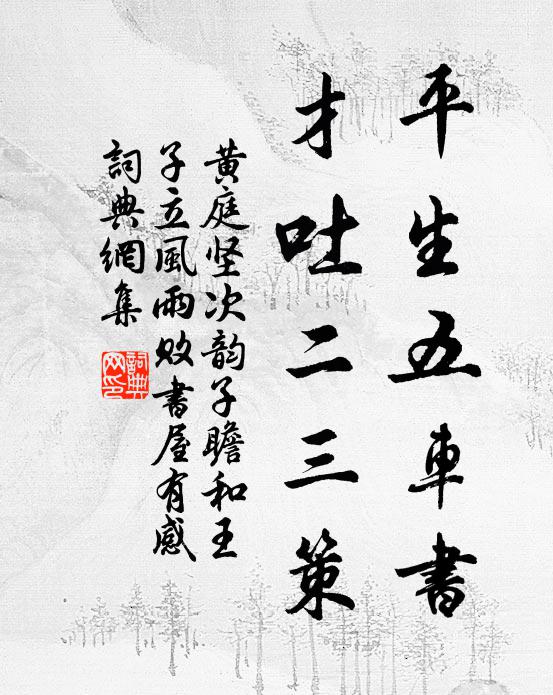 平生五車書
才吐二三策
黄庭坚次韵子瞻和王
子立風雨败書屋有感
詞典網集
詞典
网印